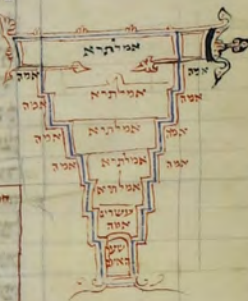 אמלתרא
אמה אמה
אמלתרא
אמה אמה
אמלתרא
אמה אמה
אמלתרא
אמה אמה
אמלתרא
עשרים
אמה
שער
האולם